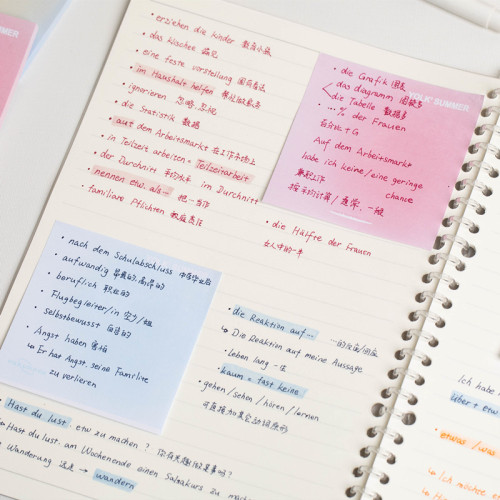 • erziehen die Kinder 教育小孩
• das Klischee 偏见
• eine feste Vorstellung 固有看法
• im Haushalt helfen 帮忙做家务
• ignorieren 忽略.忽视
• die Statistik 数据
• auf dem Arbeitsmarkt 在工作市场上
• in Teilzeit arbeiten = Teilzeitarbeit
• der Durchschnitt 平均水平 im Durchnitt
• nennen etw. als… 把…当作
• familiare Pflichten 家庭责任
SUMMER
YOLK' SUMMER
• die Grafik 图表
das diagramm 图被多
die Tabelle 数据多
• … % der Frauen
百分比+G
Auf dem Arbeitsmarkt
habe ich keine/eine geringe
chance
兼职工作
按平均计算/通常.一般
• die Hälfte der Frauen
女人中的一半
• nach dem Schulabschluss 中学毕业后
• aufwändig 昂贵的.高昂的
• beruflich 职业的
• Flugbegleiter/in 空少/姐
• selbstbewusst 自信的
• Angst haben 害怕
↳ Er has Angst, seine Familie
zu verlieren
• die Reaktion auf… …的反应/回应
↳ Die Reaktion auf meine Aussage
• Leben lang 一生
• kaum = fast keine
• gehen/sehen/hören/lernen
可直接加其它动词原形
• Hast du lust etw zu machen ? 你有兴趣做某事吗?
↳ Hast du lust. am Wochenende einen Salsakurs zu mach
• Wanderung 远足 → wandern
Ich habe
über + etw
etwas / was
Ich möchte